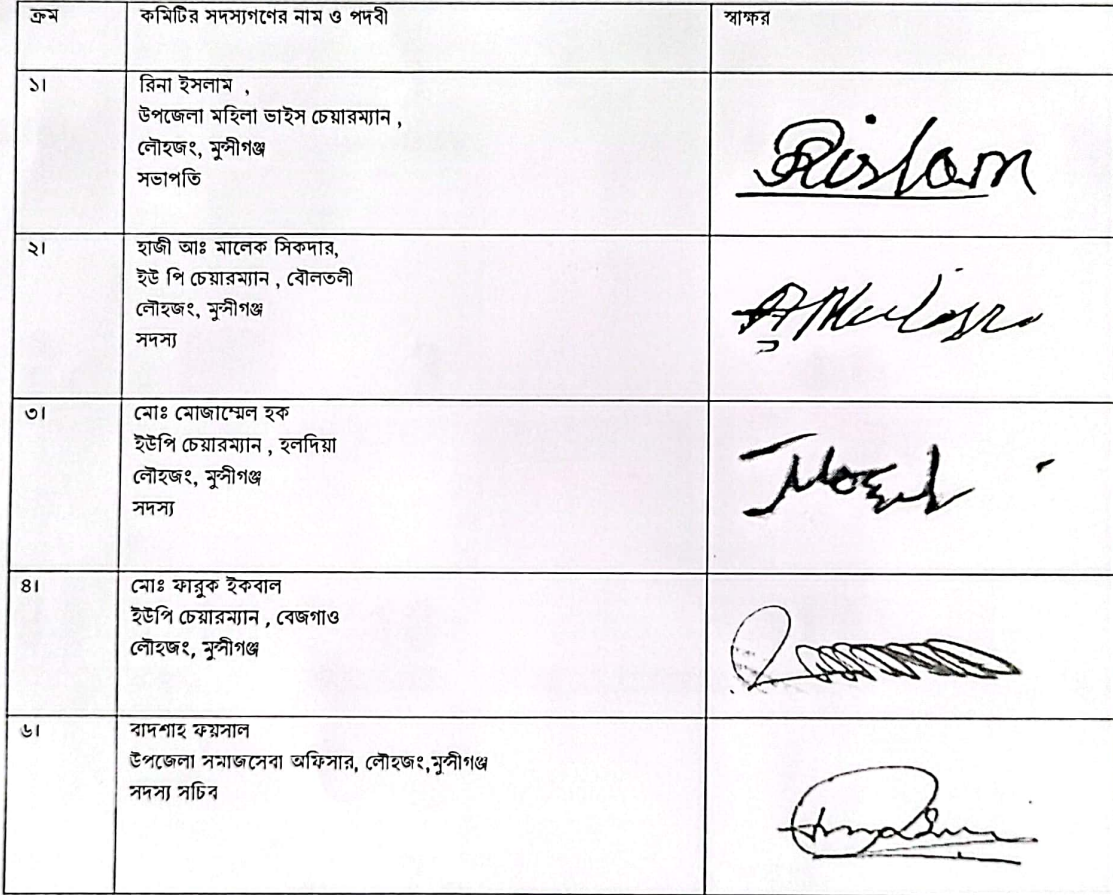 ক্রম কমিটির সদস্যগণের নাম ও পদবী স্বাক্ষর
১। রিনা ইসলাম ,
উপজেলা মহিলা ভাইস চেয়ারম্যান ,
লৌহজং, মুন্সীগঞ্জ
সভাপতি
২। হাজী আঃ মালেক সিকদার,
ইউ পি চেয়ারম্যান , বৌলতলী
লৌহজং, মুন্সীগঞ্জ
সদস্য
৩। মোঃ মোজাম্মেল হক
ইউপি চেয়ারম্যান , হলদিয়া
লৌহজং, মুন্সীগঞ্জ
সদস্য
৪। মোঃ ফারুক ইকবাল
ইউপি চেয়ারম্যান , বেজগাও
লৌহজং, মুন্সীগঞ্জ
৬। বাদশাহ ফয়সাল
উপজেলা সমাজসেবা অফিসার, লৌহজং,মুন্সীগঞ্জ
সদস্য সচিব